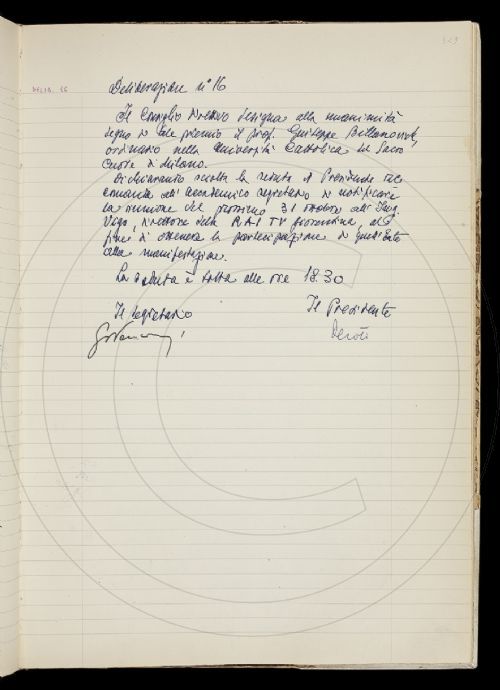 323
DELIB. 16
Deliberazione n° 16
Il Consiglio Direttivo designa alla unanimità
degno di tale premio il prof. Giuseppe Billanovich,
ordinario nella Università Cattolica del Sacro
Cuore di Milano.
Dichiarando sciolta la seduta il Presidente rac
comanda all'Accademico segretario di notificare
la riunione del prossimo 31 ottobre all'Ing.
Vago, direttore della RAI TV fiorentina, al
fine di ottenere la partecipazione di quell'Ente
alla manifestazione.
La seduta è tolta alle ore 18.30
Il segretario Il Presidente
Devoti